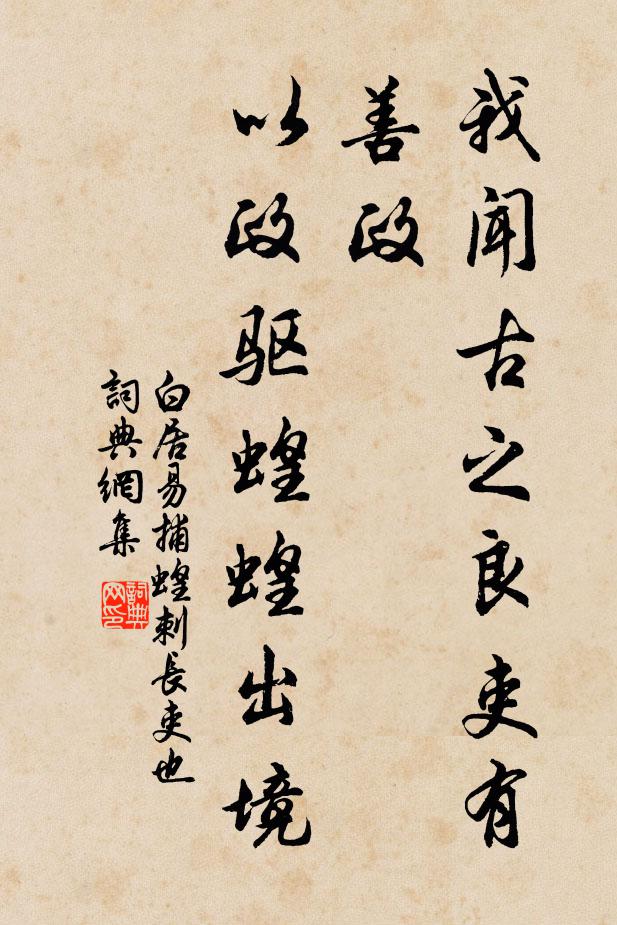 我闻古之良吏有
善政
以政驱蝗蝗出境
白居易捕蝗刺長吏也
詞典網集
詞典网印